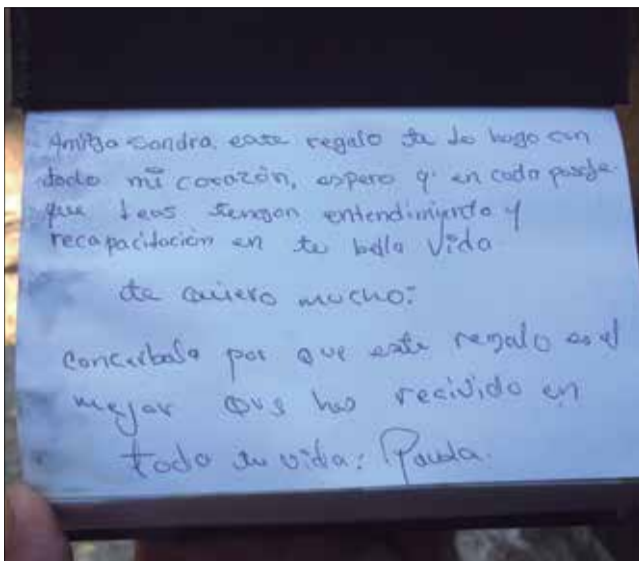 Amiga Sandra, este regalo te lo hago con
todo mi corazón, espero q' en cada pasaje
que leas tengan entendimiento y
recapacitación en tu bella vida
te quiero mucho:
concerbalo por que este regalo es el
mejor que has recivido en
toda tu vida: Paula.